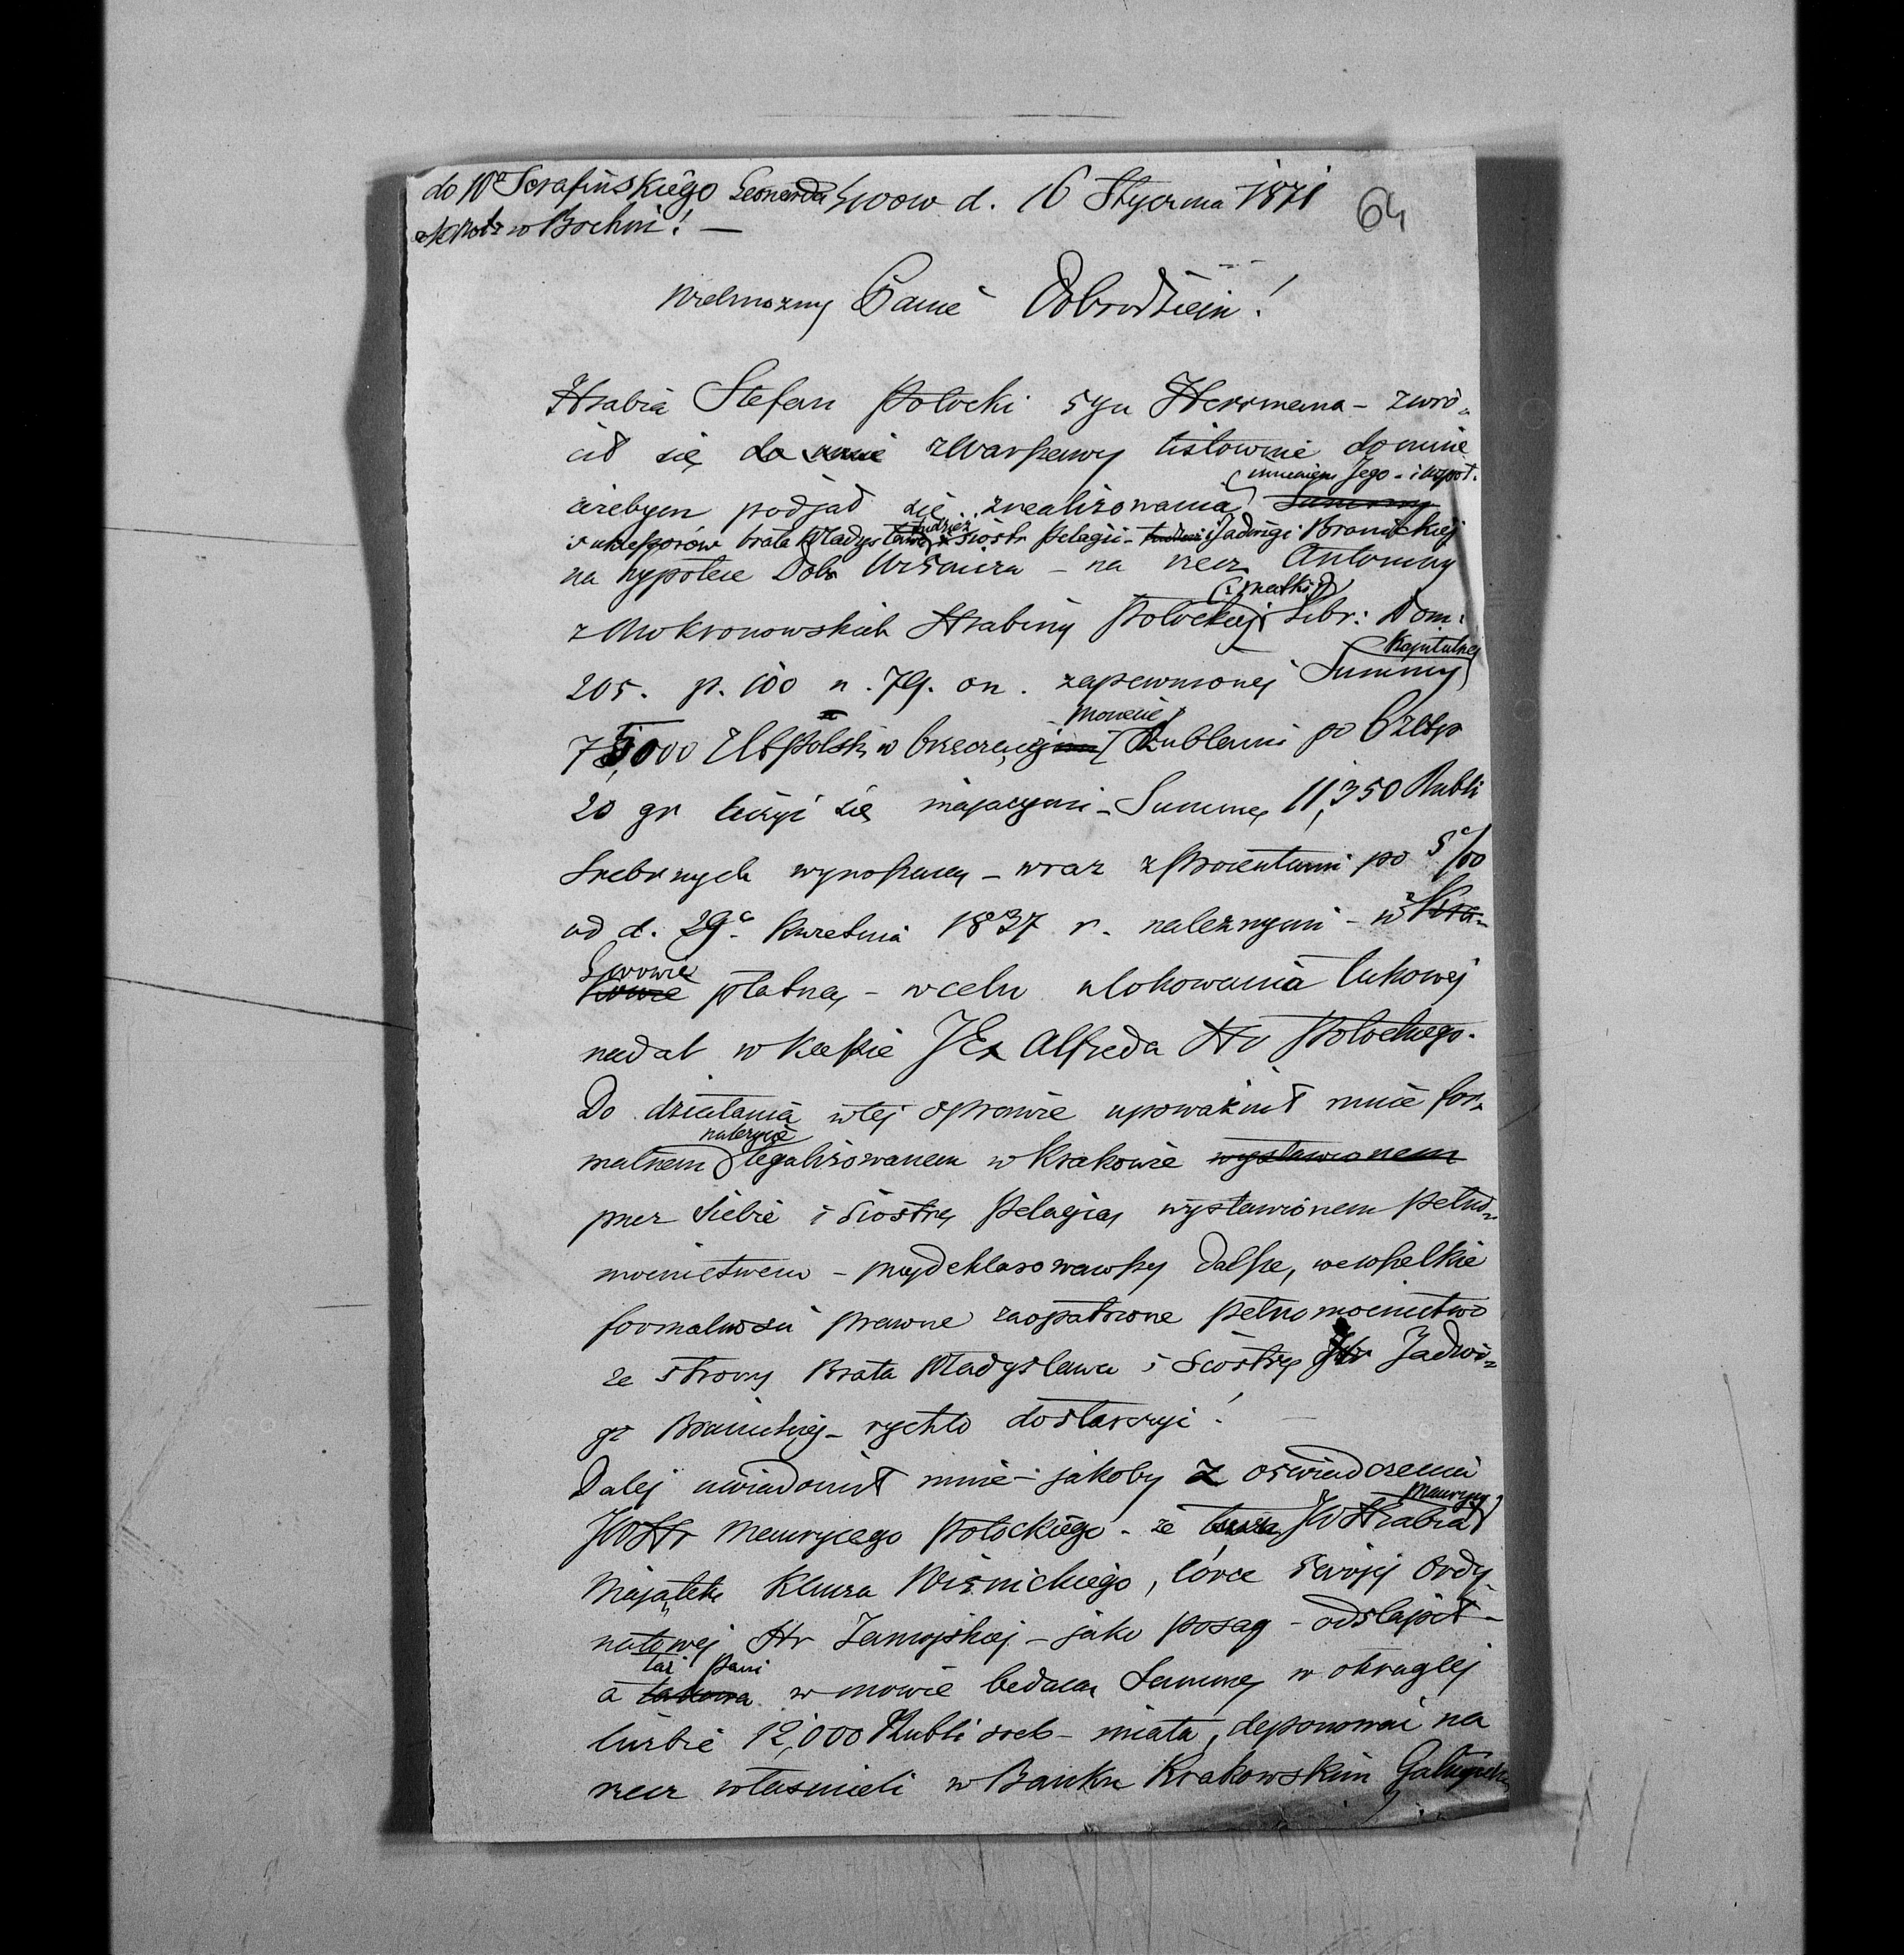 do Wº Serafińskiego Leonarda Lwow d. 16 Stycznia 1871
w Bochni! —
64
Wielmozny Panie Dobrodzieju!
Hrabia Stefan Potocki syn Herrmana - zwró-
cił się do mnie z Warszawy listownie do mnie
imieniem Jego - i współ-
ażebym podjął się zrealizowania Summy
sukcessorów brata Władysława tudzież siostr Pelagii - tudzież i Jadwigi Branickiej
na hypotece Dobr Wiśnicza - na rzecz Antoniny
(i matki)
z Mokronowskich Hrabiny Potockiej Libr: Dom:
Kapitalnej
205. p. 100 n. 79. on. zapewnionej Summy
monecie
75,000 Złt Polsk w brzęczącej Rublami po 6 złtp
20 gr liczyć się mającymi - Summę 11,350 Rubli
Srebrnych wynoszącą - wraz z procentami po 5 %
od d. 29º Kwietnia 1837 r. należnymi - w Kra-
Lwowie
kowie płatną, - w celu ulokowania takowej
nadal w Kassie JEx Alfreda Hr Potockiego.
Do działania w tej sprawie upoważnił mnie for-
należycie
malnem legalizowanem w Krakowie wystawionem
przez siebie i Siostrę Pelagię wystawionem pełno-
mocnictwem - przydeklarowawszy dalsze, we wszelkie
formalności prawne zaopatrzone pełnomocnictwo
ze strony Brata Władysława i Siostry Hr Jadwi-
gi Branickiej - rychło dostarczyć!
Dalej uwiadomił mnie - jakoby z oświadczenia
Maurycy
JW Hr Maurycego Potockiego - że JW Hrabia
Majątek Klucza Wiśnickiego, córce swojej Ordy-
natowej Hr Zamojskiej - jako posag - odstąpił -
taż Pani
a takowa w mowie będącą Summę w okrągłej
liczbie 12,000 Rubli sreb - miała, deponować na
rzecz właścicieli w Banku Krakowskim